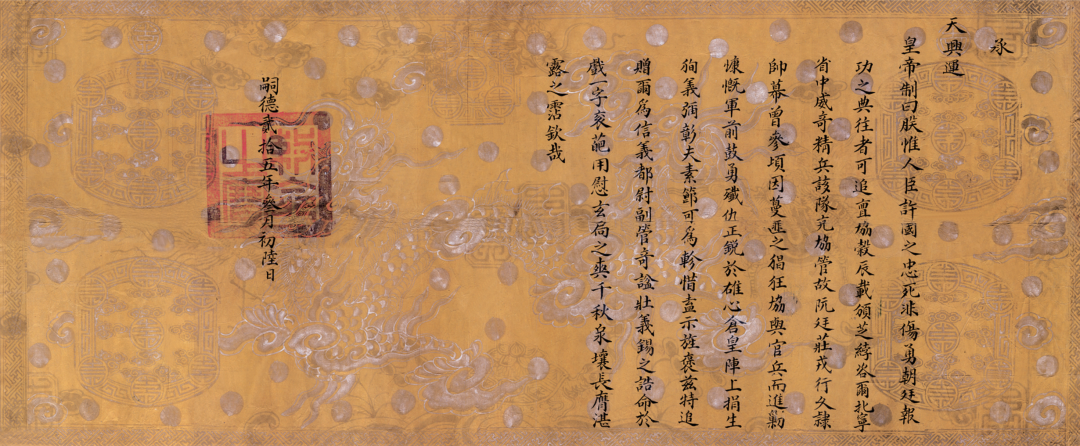 承
天興運
皇帝制曰朕惟人臣許國之忠死非傷勇朝廷報
功之典往者可追亶協穀辰載頒芝綍咨爾北寧
省中威奇精兵該隊充協管故阮廷莊戎行久隸
帥幕曾參頃因蔓匪之猖狂協與官兵而進勦
慷慨軍前鼓勇殲仇正銳於雄心倉皇陣上捐生
狥義彌彰夫素節可爲軫惜盍示旌褒茲特追
贈爾爲信義都尉副管奇謚壯義錫之誥命於
戲一字袞葩用慰玄局之爽千秋泉壤長膺湛
露之霑欽哉
嗣德貳拾五年叄月初陸日